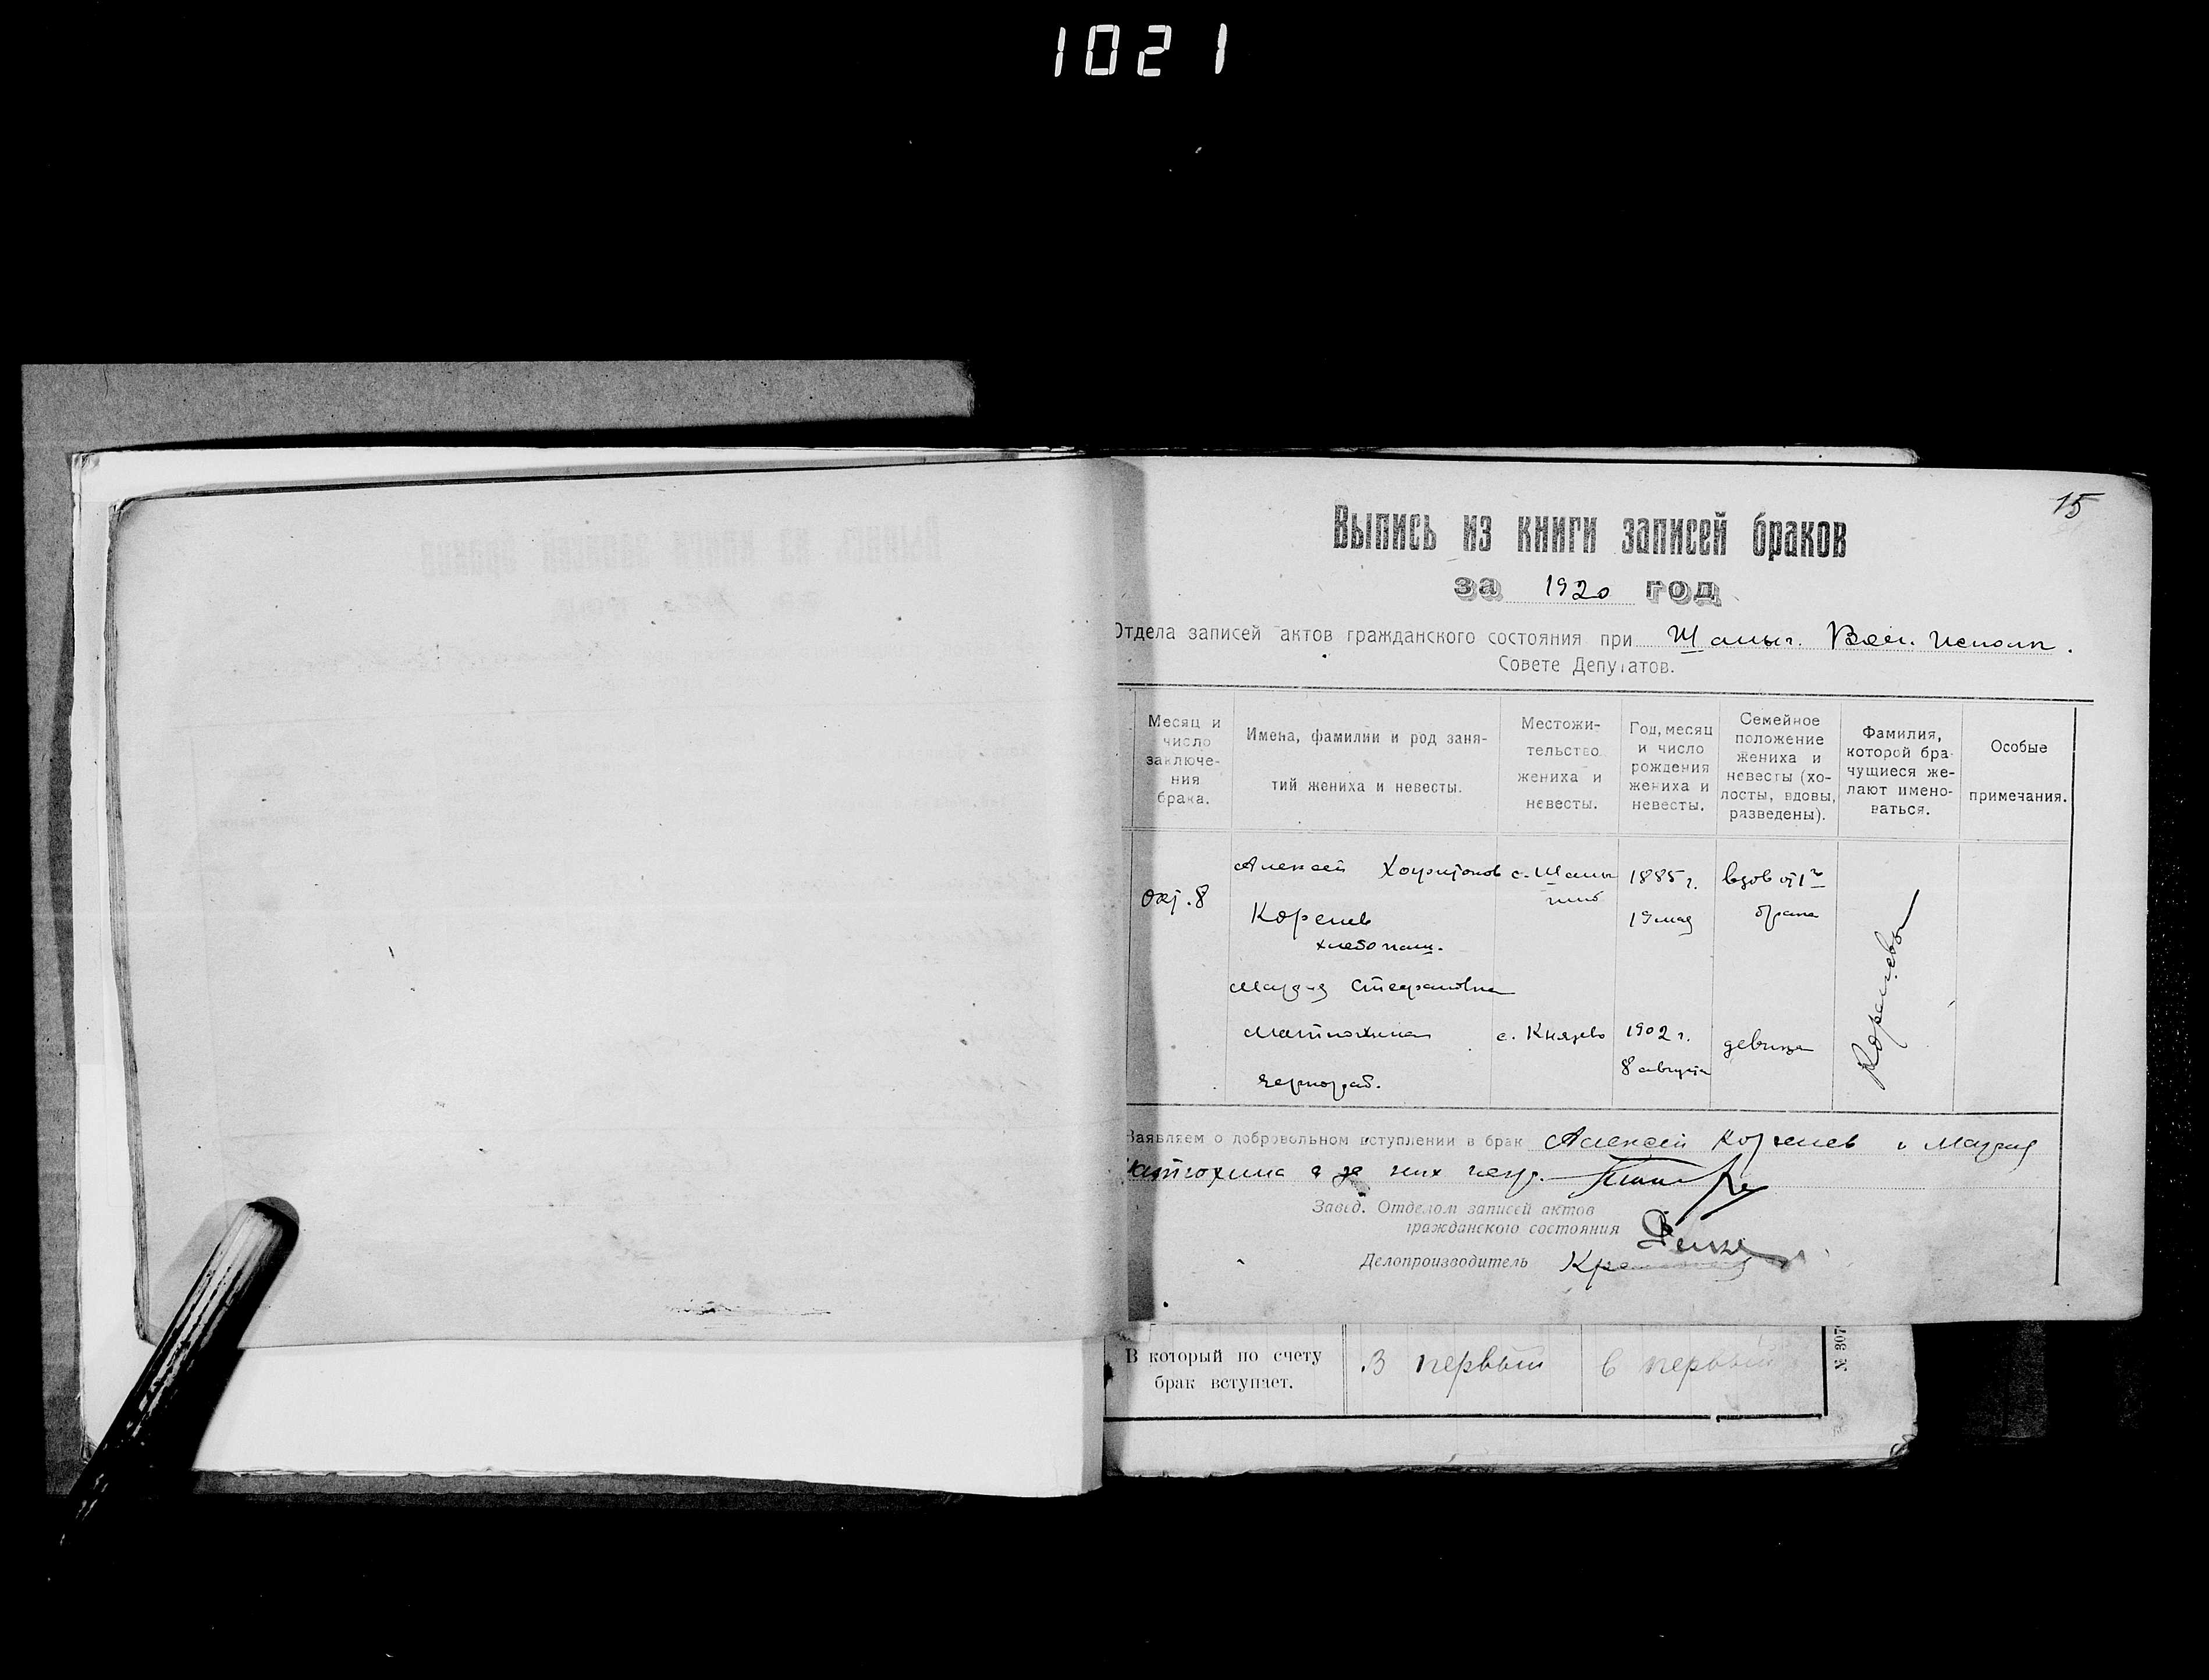 1021
15
Выпись из книги записей браков
за 1920 год
Отдела записей актов гражданского состояния при Шалыг. Вол. Исполк.
Совете Депутатов.
Месяц и число заключения брака.
Имена, фамилии и род занятий жениха и невесты.
Местожительство жениха и невесты.
Год, месяц и число рождения жениха и невесты.
Семейное положение жениха и невесты (холосты, вдовы, разведены).
Фамилия, которой брачущиеся желают именоваться.
Особые примечания.
Окт. 8
Алексей Харитонов с. Шалы 1885 г. вдов от 1го
19 мая брака
Коренев
хлебопаш.
Мария Стефановна
Матюхина с. Князево 1902 г. девица
8 августа
чернораб.
Кореневы
Заявляем о добровольном вступлении в брак Алексей Коренев и Мария
Матюхина а за них негр.
Завед. Отделом записей актов
гражданского состояния
Делопроизводитель
В который по счету
брак вступает.
В первый в первый
№ 307